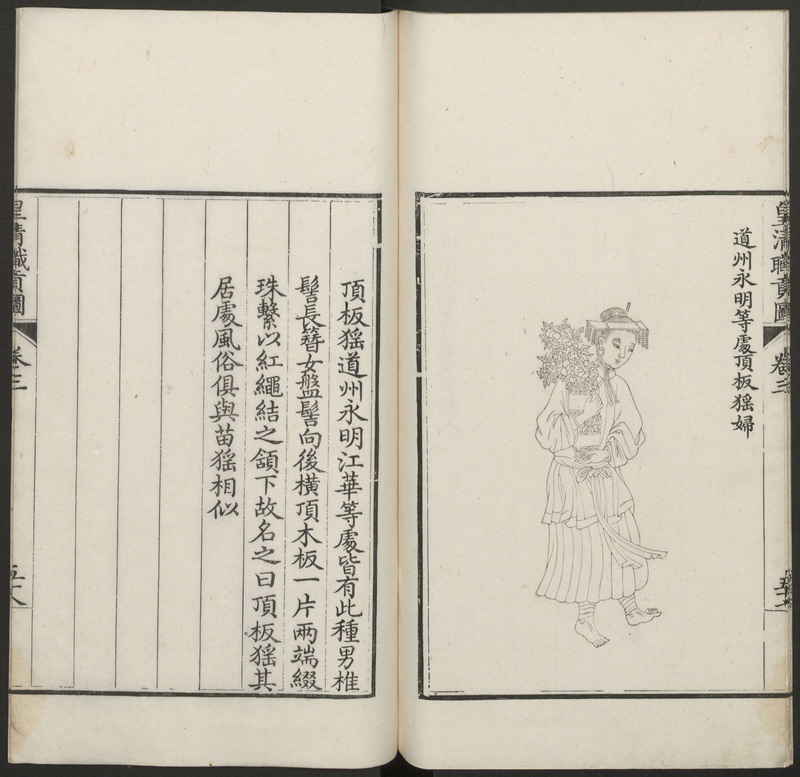 皇清職貢圖
卷三
五十七
道州永明等處頂板猺婦
頂板猺道州永明江華等處皆有此種男椎
髻長簪女盤髻向後橫頂木板一片兩端綴
珠繫以紅繩結之頷下故名之曰頂板猺其
居處風俗俱與苗猺相似
皇清職貢圖
卷三
五十八